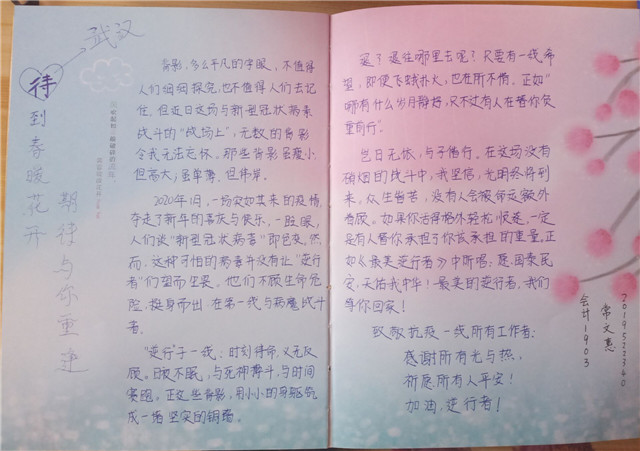 武汉
待到春晓花开
期待与你重逢
背影，多么平凡的字眼，不值得
人们细细探究，也不值得人们去记
住。但近日这场与新型冠状病毒
战斗的“战场上”，无数的背影
令我无法忘怀。那些背影虽瘦小，
但高大；虽单薄，但伟岸。
2020年1月，一场突如其来的疫情，
夺走了新年的喜庆与快乐，一眨眼，
人们谈“新型冠状病毒”即色变。然
而，这种可怕的病毒并没有让“逆行
者”们望而生畏。他们不顾生命危
险，挺身而出，在第一线与病魔战斗
着。
“逆行”于一线，时刻待命，义无反
顾。日夜不眠，与死神搏斗，与时间
赛跑。正这些背影，用小小的身躯筑
成一堵坚实的铜墙。
退？退往哪里去呢？只要有一线希
望，即便飞蛾扑火，也在所不惜。正如“
哪有什么岁月静好，只不过有人在替你负
重前行”。
岂曰无依，与子偕行。在这场没有
硝烟的战斗中，我坚信，光明终将到
来，众生皆苦，没有人会被命运额外
眷顾。如果你活得格外轻松惬意，一定
是有人替你承担了你该承担的重量。正
如《最美逆行者》中所唱：愿，国泰民
安，天佑我中华！最美的逆行者，我们
等你回家！
致敬抗疫一线所有工作者：
感谢所有光与热，
祈愿所有人平安！
加油，逆行者！
2019522340
常文惠
会计1903